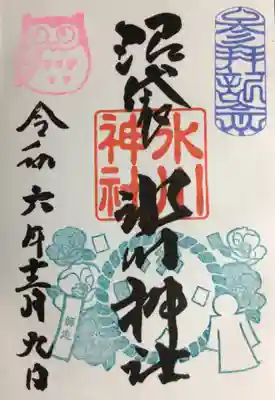 参拝記念
沼袋氷川神社
氷川
神社
令和六年十二月九日
師走